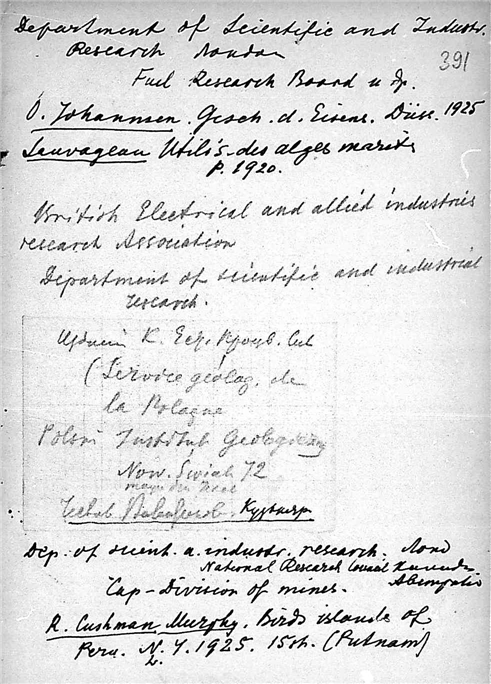 Department of Scientific and Industr.
Research London
391
Fuel Research Board и др.
O. Johannsen. Gesch. d. Eisens. Düss. 1925
Sauvageau Utilis. des algues marit
P. 1920.
British Electrical and allied industries
research Association
Department of scientific and industrial
research.
К. Ест. Произв. Сил
(Service géolog. de
la Pologne
Polski Instytut Geologiczny
Now. Świat 72
Dep. of scient. a. industr. research. Lond
National Research Council
Cap-Division of mines.
R. Cushman Murphy. Birds islands of
Peru. N. Y. 1925. 15sh. (Putnam)